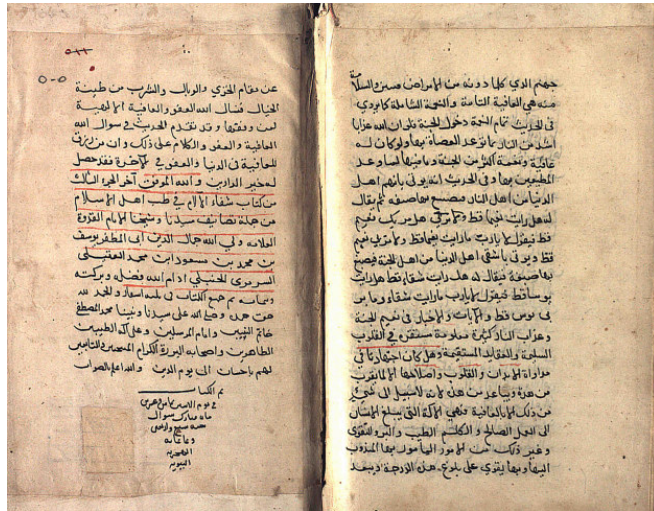 جهنم الذي كلما دونه من الامراض فسير والسلامة
منه هي العافية التامة والنعمة الشاملة كما روي
في الحديث تمام النعمة دخول الجنة فلو ان الله عذابا
اشد من النار لتوعد العصاة بها ولو كان له
عافية ونعمة اكثر من الجنة وما فيها لما وعد
المطيعين بها وفي الحديث انه يوتى بانعم اهل
الدنيا من اهل النار فيصبغ بها صبغه ثم يقال
له هل رايت نعيما قط هل مر بك نعيم
قط فيقول لا يا رب ما رايت نعيما قط ولا مر بي نعيم
قط ويوتى باشقى اهل الدنيا من اهل الجنة فيصبغ
بها صبغة فيقال له هل رايت شقاء قط هل رايت
بوسا قط فيقول لا يا رب ما رايت شقاء وما مر
بي بوس قط والايات والاخبار في نعيم الجنة
وعذاب النار كثيرة معلومة مستقرة في القلوب
السليمة والعقايد المستقيمة وهل كان اجتهادنا في
مداواة الابدان والقلوب واصلاحها الا لما يقرب
من هذه ويباعد من هذه لانه لا سبيل الى شيء
من ذلك الا بالعافية وهي الالة التي يبلغ الانسان
الى العمل الصالح والكلم الطيب والبر والتقوى
وغير ذلك من الامور المامور بها المندوب
اليها وبها يقوى على بلوغ هذه الدرجة ويبعد
عن مقام الخزي والوبال والشرب من طينة
الخبال فنسال الله العفو والعافية
وقد تقدم الحديث في سوال الله
العافية والعفو والكلام على ذلك وان من رزق
العافية في الدنيا والعفو في الاخرة فقد حصل
له خير الدارين والله الموفق آخر الجزء الثالث
من كتاب شفاء الالام في طب اهل الاسلام
من جملة تصانيف سيدنا وشيخنا الامام القدوة
العلامة ولي الله جمال الدين ابي المظفر يوسف
بن محمد بن مسعود ابن محمد العقيلي
السرمري الحنبلي ادام الله فضله وبركته
وبتمامه تم جميع الكتاب والحمد لله
حق حمده وصلى الله على سيدنا ونبينا محمد المصطفى
خاتم النبيين وامام المرسلين وعلى آله الطيبين
الطاهرين واصحابه البررة الكرام المنتجبين والتابعين
لهم باحسان الى يوم الدين والله اعلم بالصواب
تم الكتاب
في يوم
ماه مبارك شوال
سنة
النبوية